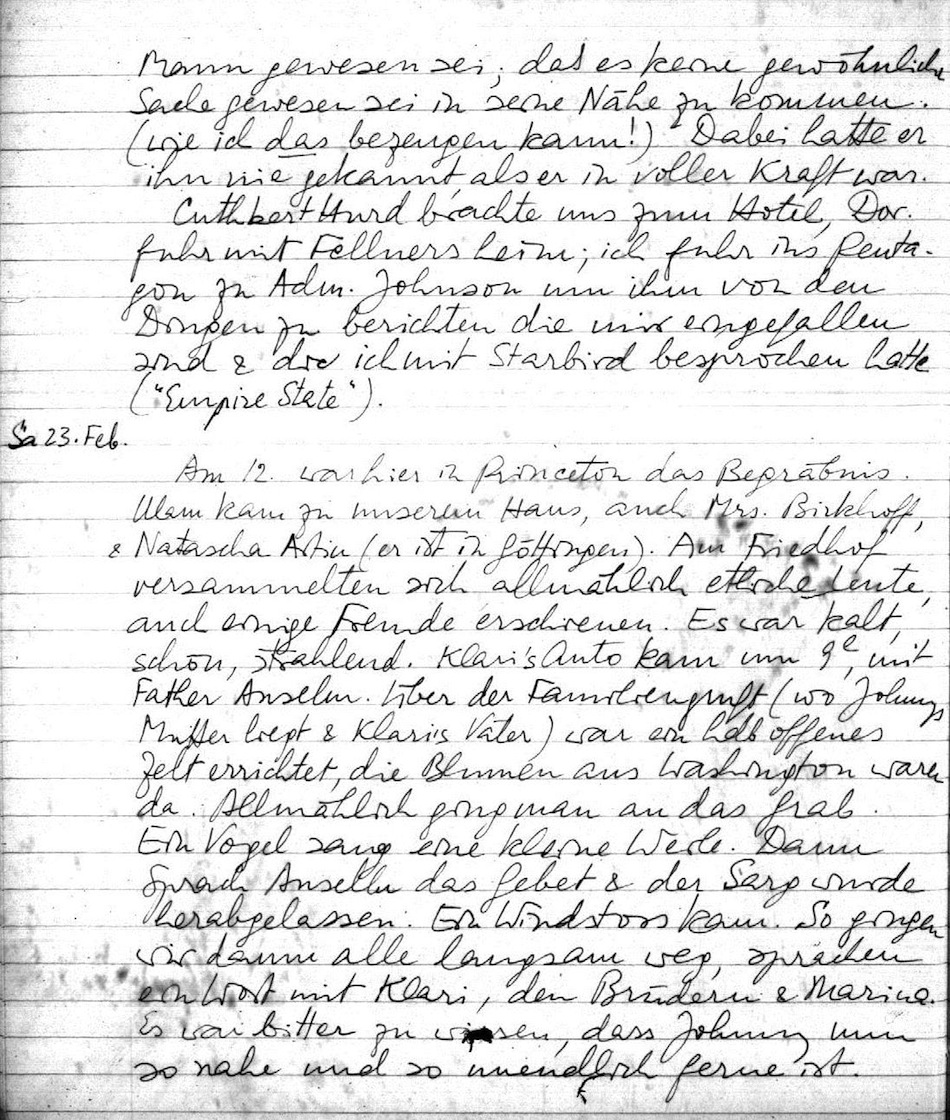 Mann gewesen sei; daß es keine gewöhnliche
Sache gewesen sei in seine Nähe zu kommen.
(wie ich das bezeugen kann!) Dabei hatte er
ihn nie gekannt, als er in voller Kraft war.
Cuthbert Hurd brachte uns zum Hotel, Dor.
fuhr mit Fellners heim; ich fuhr ins Penta-
gon zu Adm. Johnson um ihm von den
Dingen zu berichten die mir eingefallen
sind & die ich mit Starbird besprochen hatte
("Empire State").
Sa 23. Feb.
Am 12. war hier in Princeton das Begräbnis.
Ulam kam zu unserem Haus, auch Mrs. Birkhoff,
& Natascha Artin (er ist in Göttingen). Am Friedhof
versammelten sich allmählich etliche Leute,
auch einige Fremde erschienen. Es war kalt,
schön, strahlend. Klari's Auto kam um 9e, mit
Father Anselm. Über der Familiengruft (wo Johnnys
Mutter liegt & Klaris Vater) war ein halb offenes
Zelt errichtet, die Blumen aus Washington waren
da. Allmählich ging man an das Grab.
Ein Vogel sang eine kleine Weile. Dann
sprach Anselm das Gebet & der Sarg wurde
herabgelassen. Ein Windstoss kam. So gingen
wir dann alle langsam weg, sprachen
ein Wort mit Klari, den Brüdern & Marina.
Es war bitter zu wissen, dass Johnny nun
so nahe und so unendlich ferne ist.